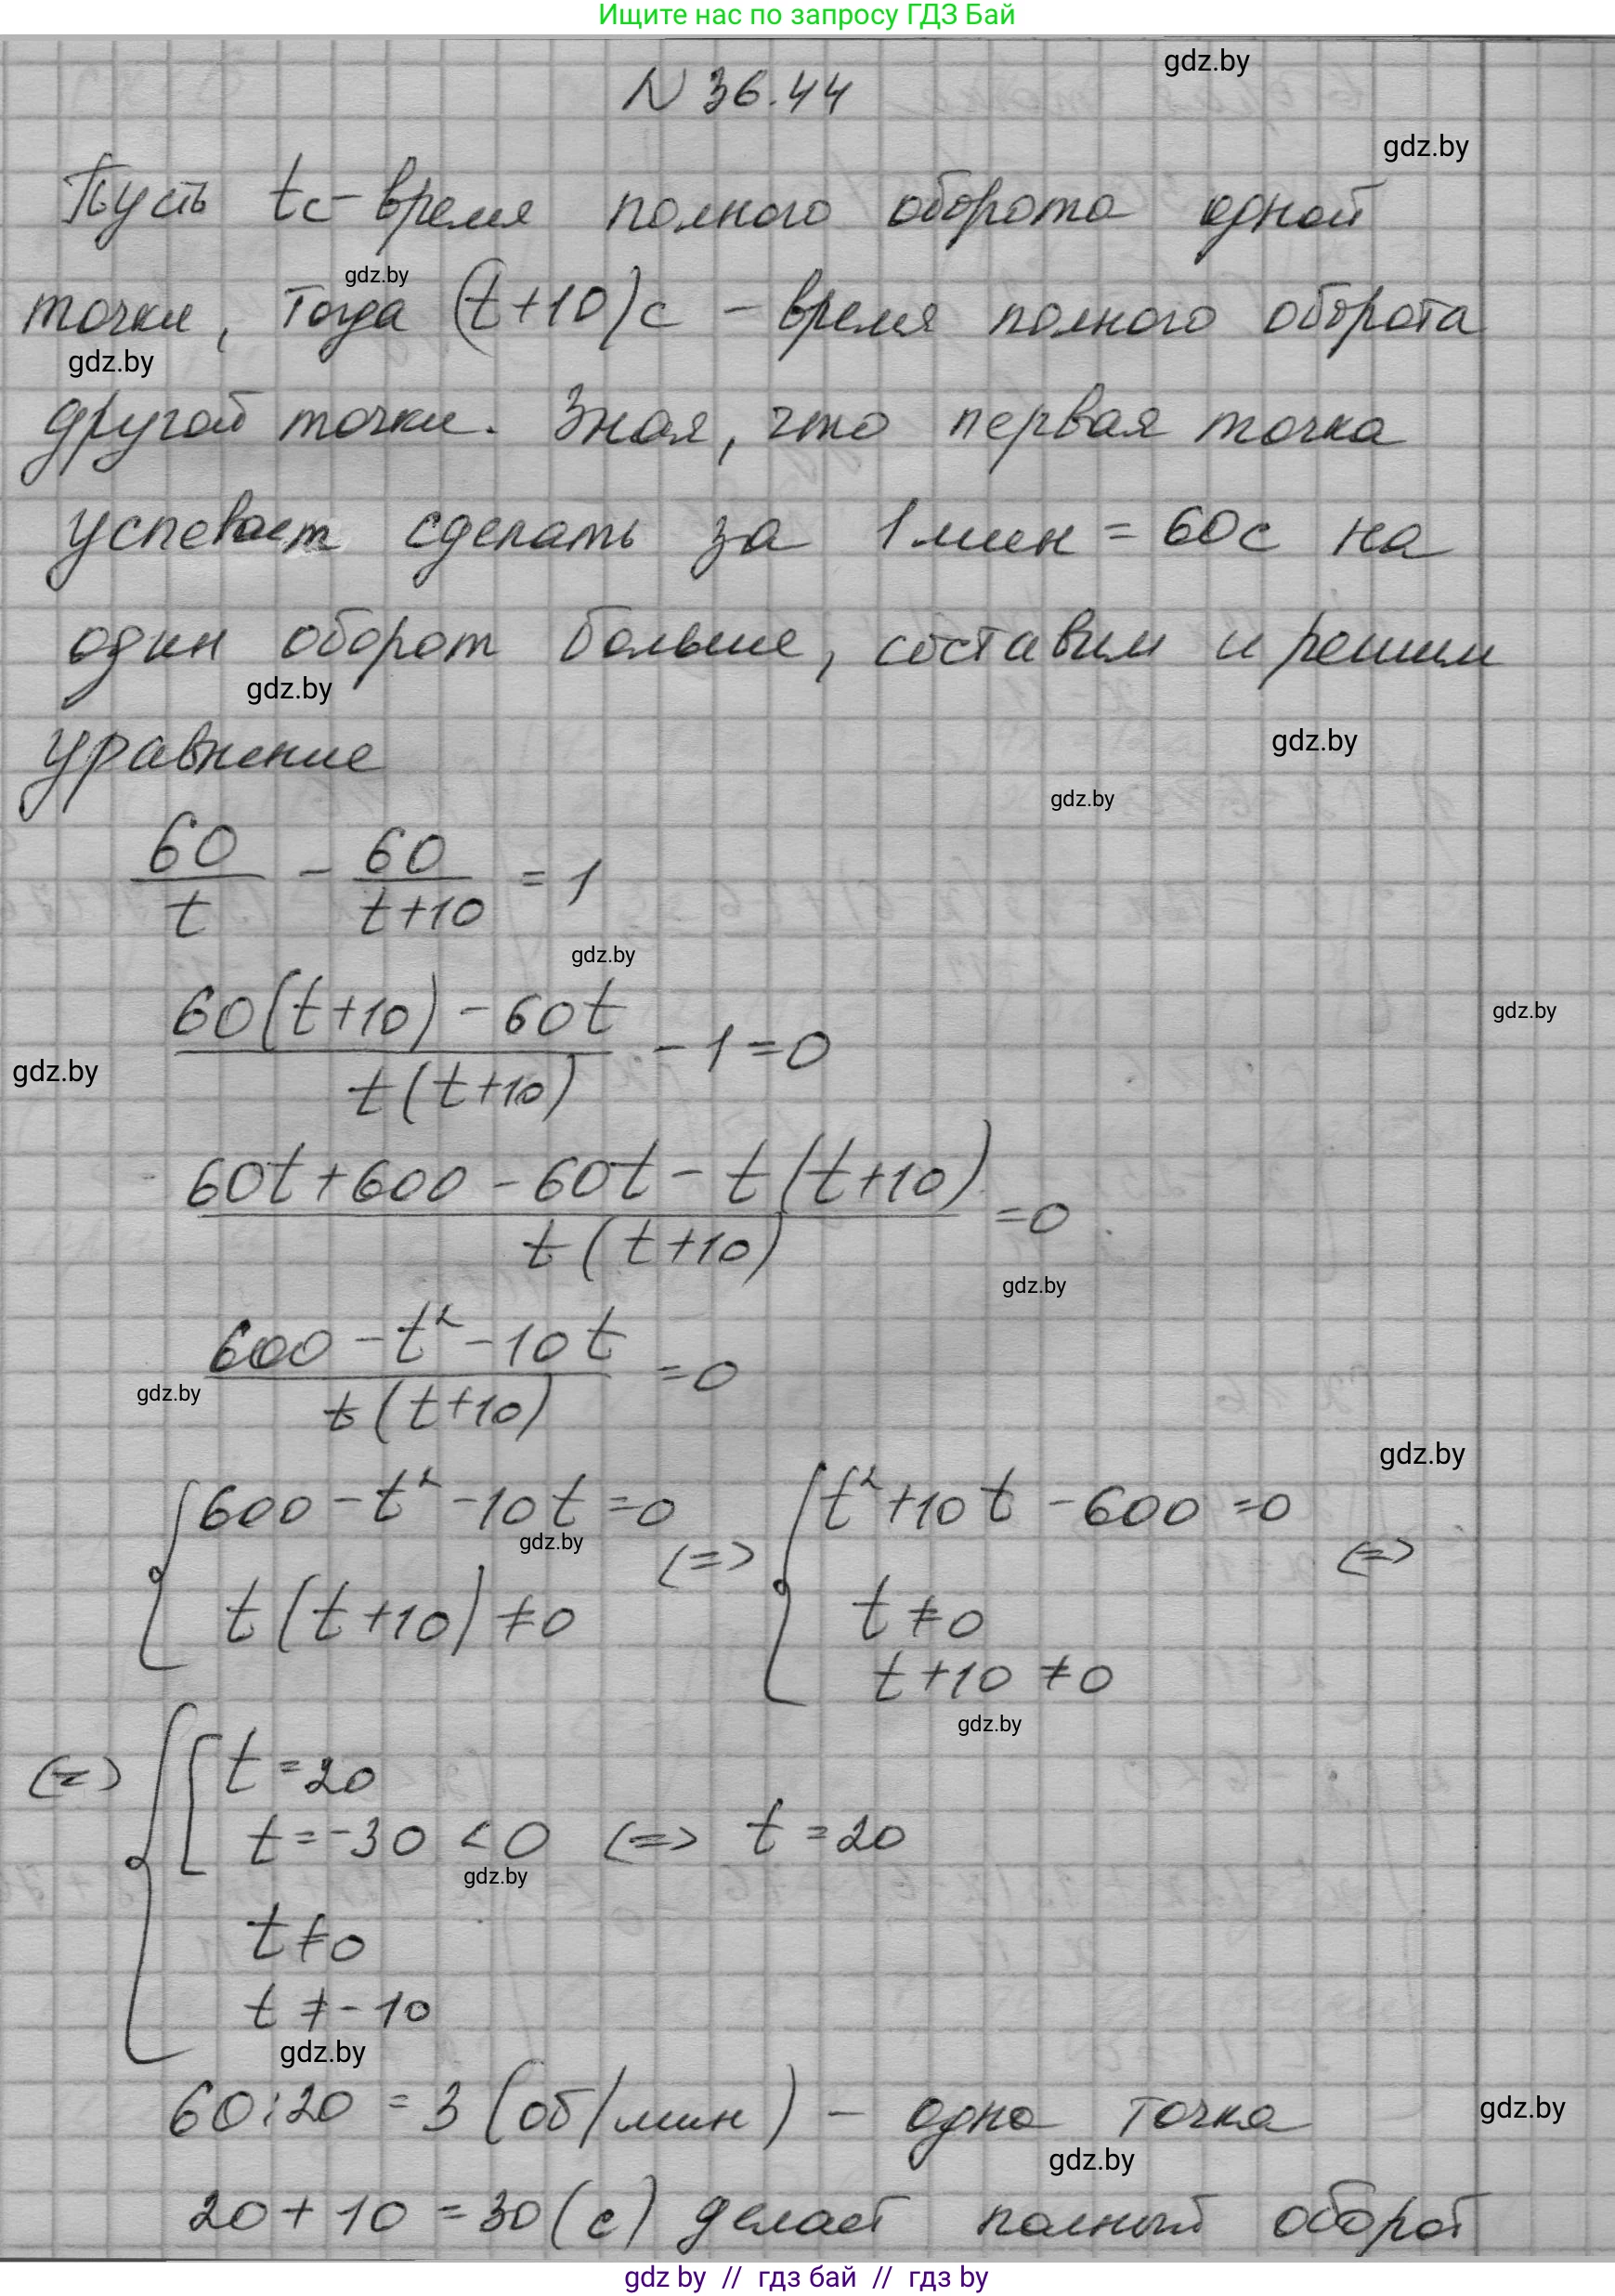 Ищите нас по запросу ГДЗ Бай
gdz.by
N 36.44
gdz.by
Пусть t с - время полного оборота одной
gdz.by
точки, тогда (t+10) с - время полного оборота
gdz.by
другой точки. Зная, что первая точка
успевает сделать за 1 мин = 60 с на
один оборот больше, составим и решим
gdz.by
уравнение
gdz.by
gdz.by
60/t - 60/(t+10) = 1
gdz.by
gdz.by
(60(t+10) - 60t)/(t(t+10)) - 1 = 0
gdz.by
(60t + 600 - 60t - t(t+10))/(t(t+10)) = 0
gdz.by
(600 - t² - 10t)/(t(t+10)) = 0
gdz.by
gdz.by
{ 600 - t² - 10t = 0 <=> { t² + 10t - 600 = 0 <=>
gdz.by
t(t+10) ≠ 0 t ≠ 0
t + 10 ≠ 0
gdz.by
<=> { [ t = 20
t = -30 < 0 <=> t = 20
gdz.by
t ≠ 0
t ≠ -10
gdz.by
60:20 = 3 (об/мин) - одна точка
gdz.by
gdz.by
20 + 10 = 30 (с) делает полный оборот
gdz by // гдз бай // гдз by